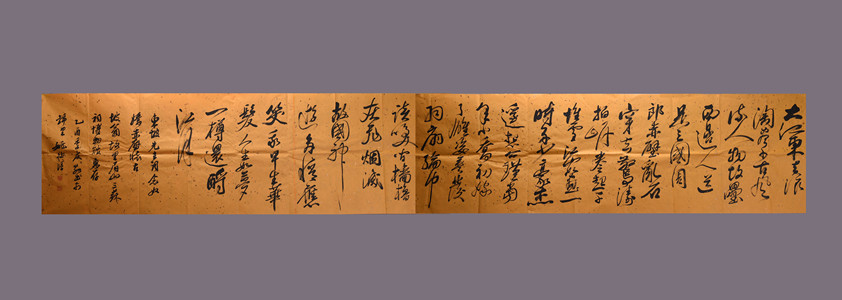 大江東去浪
淘盡千古風
流人物故壘
西邊人道
是三國周
郎赤壁亂石
穿空驚濤
拍岸卷起千
堆雪江山如畫一
時多少豪傑
遙想公瑾當
年小喬初嫁
了雄姿英發
羽扇綸巾
談笑間檣櫓
灰飛煙滅
故國神
遊多情應
笑我早生華
髮人生如夢
一樽還酹
江月
東坡先生詞念奴
嬌赤壁懷古
眉山三蘇
祠博物館
乙酉年